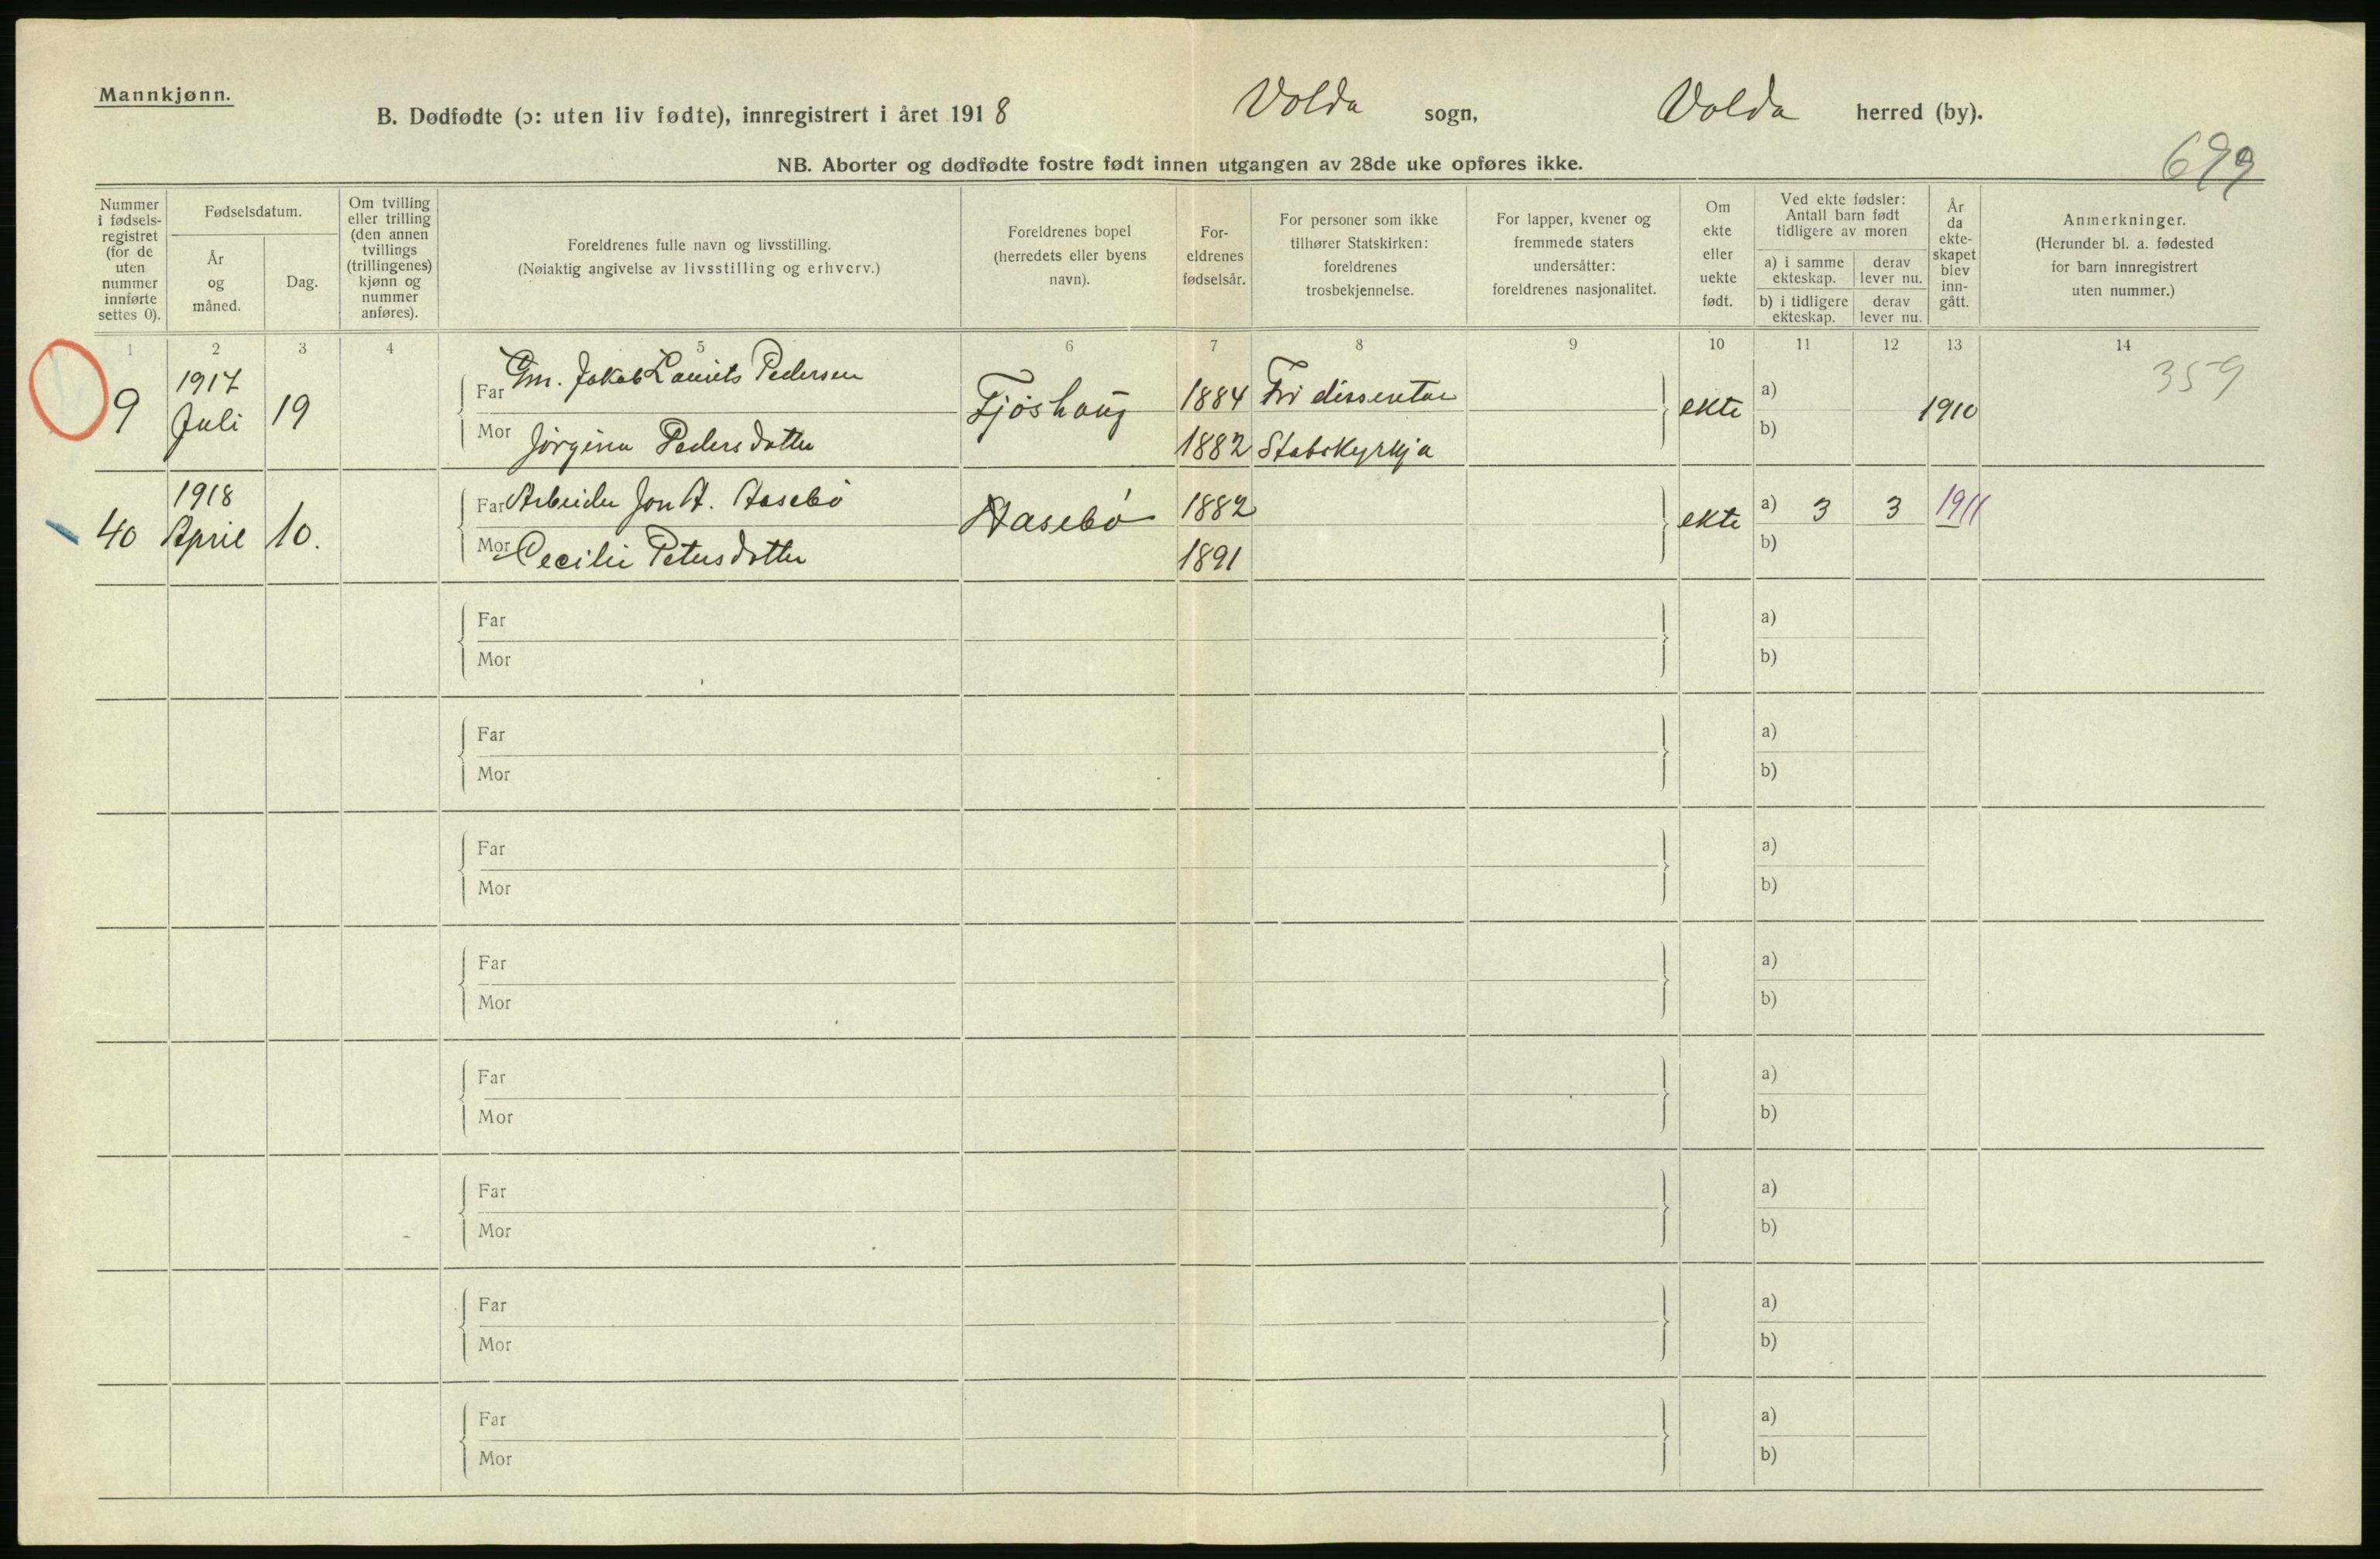 Mannkjønn.
B. Dødfødte (ɔ: uten liv fødte), innregistrert i året 1918 Volda sogn, Volda herred (by).
NB. Aborter og dødfødte fostre født innen utgangen av 28de uke opføres ikke.
699
Nummer i fødsels-registret (for de uten nummer innførte settes 0).
Fødselsdatum.
År og måned.
Dag.
Om tvilling eller trilling (den annen tvillings (trillingenes) kjønn og nummer anføres).
Foreldrenes fulle navn og livsstilling.
(Nøiaktig angivelse av livsstilling og erhverv.)
Foreldrenes bopel (herredets eller byens navn).
For-eldrenes fødselsår.
For personer som ikke tilhører Statskirken: foreldrenes trosbekjennelse.
For lapper, kvener og fremmede staters undersåtter: foreldrenes nasjonalitet.
Om ekte eller uekte født.
Ved ekte fødsler: Antall barn født tidligere av moren
a) i samme ekteskap. derav lever nu.
b) i tidligere ekteskap. derav lever nu.
År da ekte-skapet blev inn-gått.
Anmerkninger.
(Herunder bl. a. fødested for barn innregistrert uten nummer.)
1 2 3 4 5 6 7 8 9 10 11 12 13 14
359
9 1917 Juli 19
Far Gm. Jakob Laurits Pedersen Fjøshaug 1884 Fri dissentar ekte a) 1910
Mor Jørgina Pedersdotter 1882 Statskyrkja b)
40 1918 April 10.
Far Arbeider Jon A. Aasebø Aasebø 1882 ekte a) 3 3 1911
Mor Cecilie Petersdotter 1891 b)
Far a)
Mor b)
Far a)
Mor b)
Far a)
Mor b)
Far a)
Mor b)
Far a)
Mor b)
Far a)
Mor b)
Far a)
Mor b)
Far a)
Mor b)